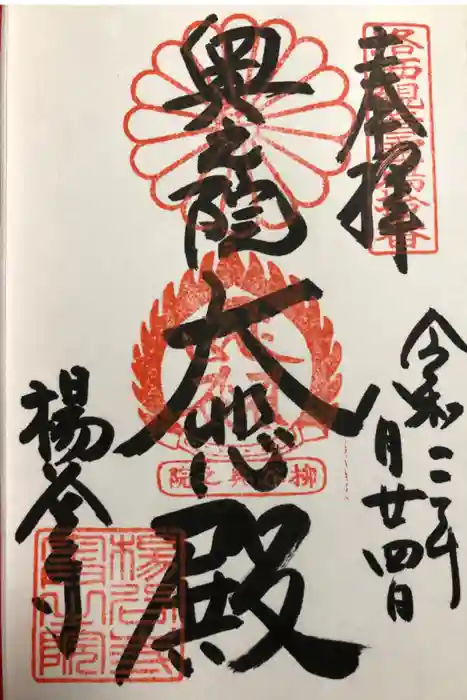 奉拝
洛西観音霊場第拾番
奥之院
大悲殿
柳谷奥之院
令和二年
月廿四日
楊谷寺